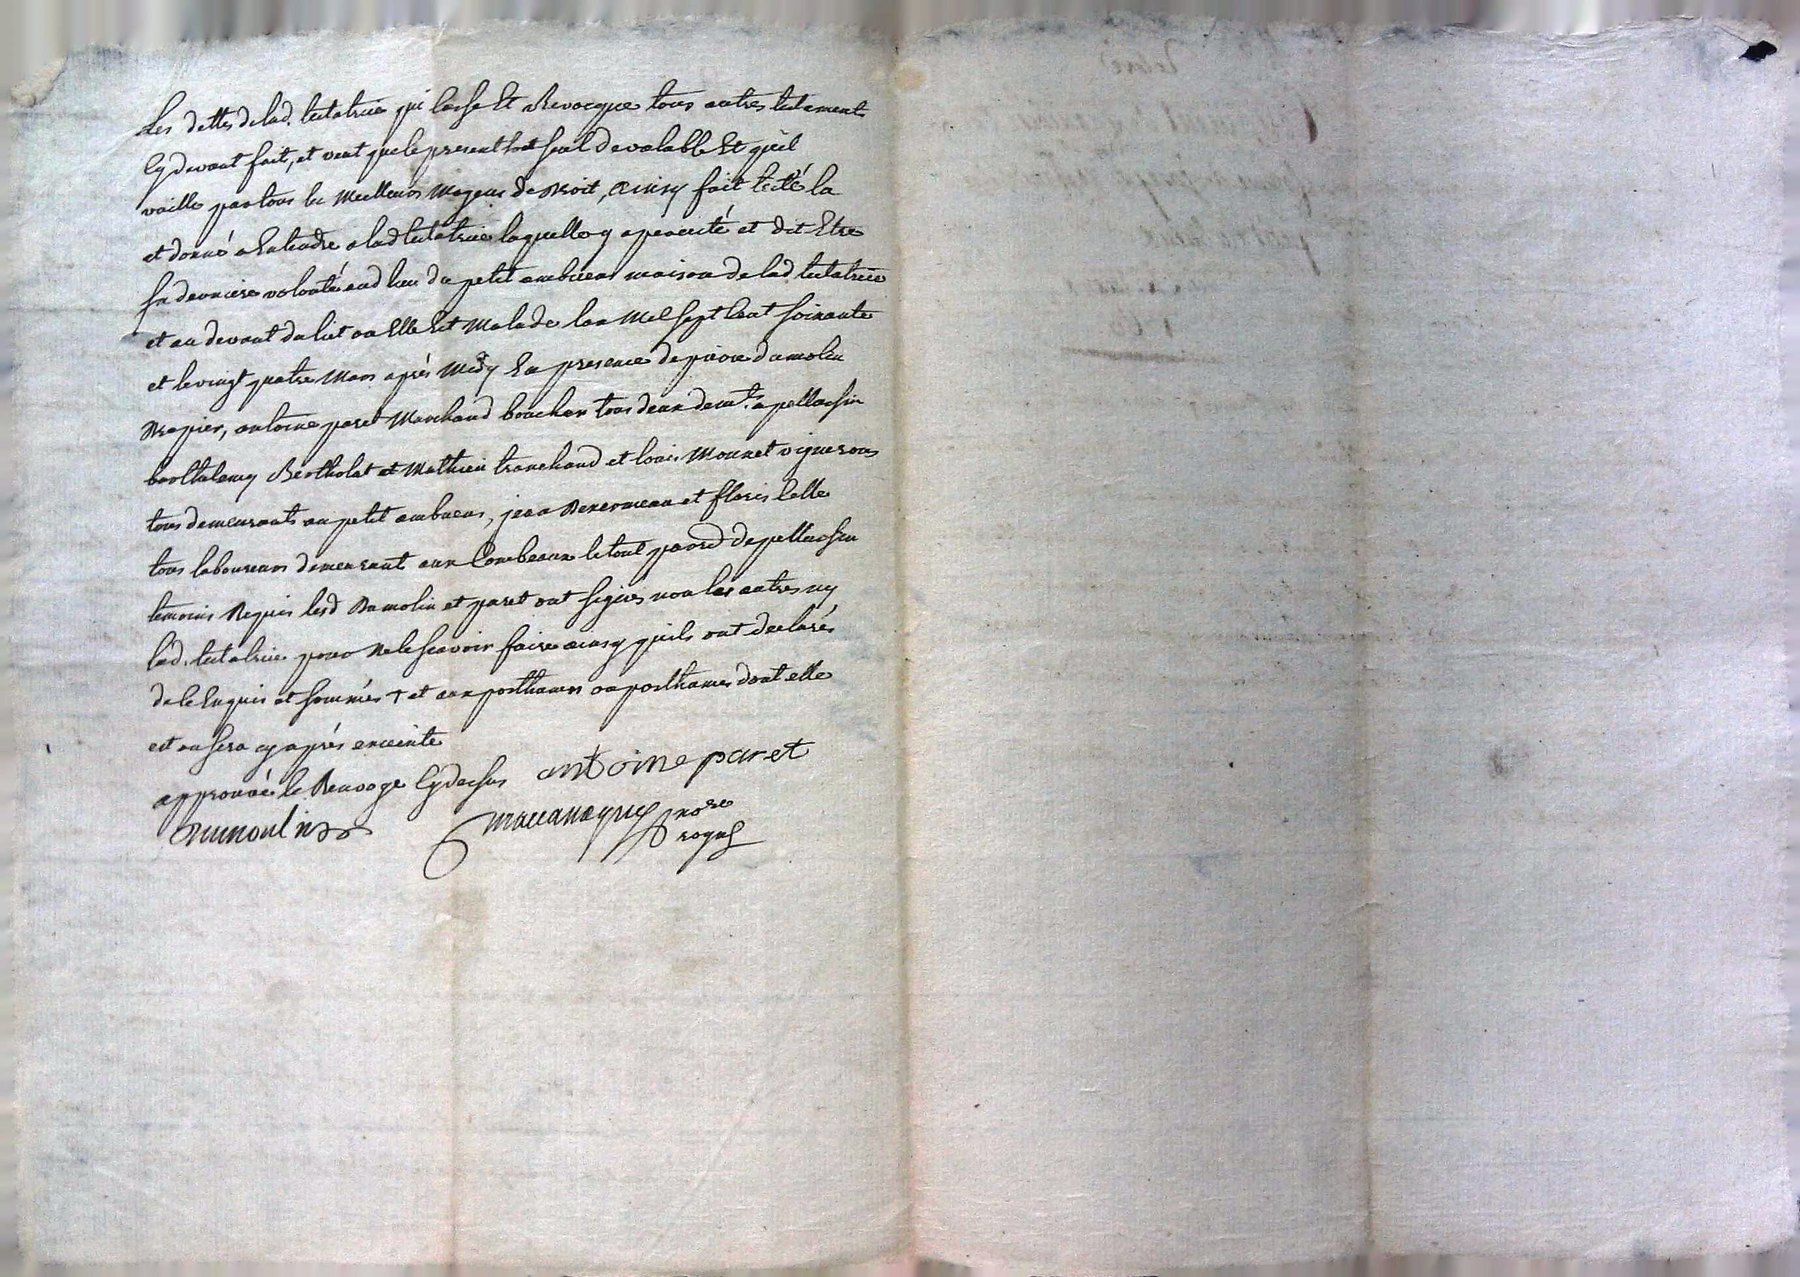 les dettes de lad. testatrice qui casse Et Revocque tous autres testaments
Cy devant fait, et veut que le present soit seul de valable Et quil
vaille par tous les Meilleurs Moyens de Droit, ainsy fait testé lu
et donné a Entendre a lad testatrice laquelle y a percisté et dit Etre
sa derniere volonté aud lieu du petit embueas maison de lad testatrice
et au devant du lict ou Elle Est Malade lan Mil sept Cent soixante
et le vingt quatre Mars après Midy En presence de pierre dumolin
Drapier, antoine paret Marchand boucher tous deux demts. a pellussin
barthelemy Bertholat et Mathieu tranchand et louis Monnet vignerons
tous demeurants au petit embueas, jean et floris Celle
tous laboureurs demeurant aux Combeaux le tout parred de pellussin
temoins Requis lesd Dumolin et paret ont signés non les autres ny
lad. testatrice pour Ne le scavoir faire ainsy quils ont declarés
de ce Enquis et sommés + et aux posthumes ou posthumes dont elle
est ou sera cy après enceinte
approuvé le Renvoye Cy dessus antoine paret
Dumoulin
nore
royal